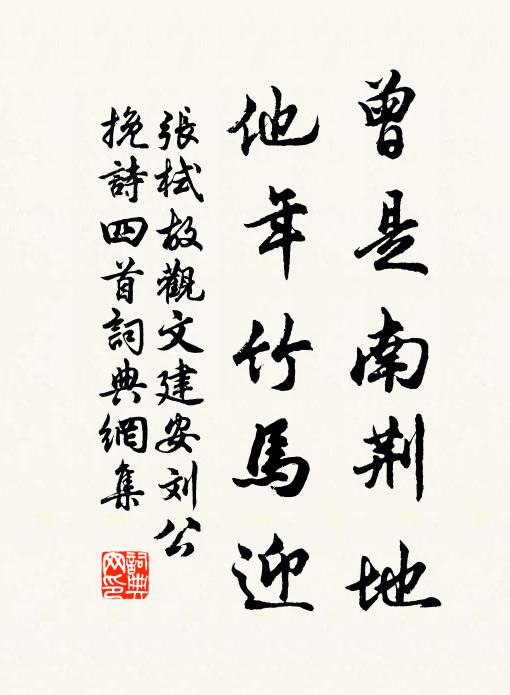 曾是南荆地
他年竹馬迎
張栻故觀文建安刘公
挽詩四首詞典網集
詞典網印